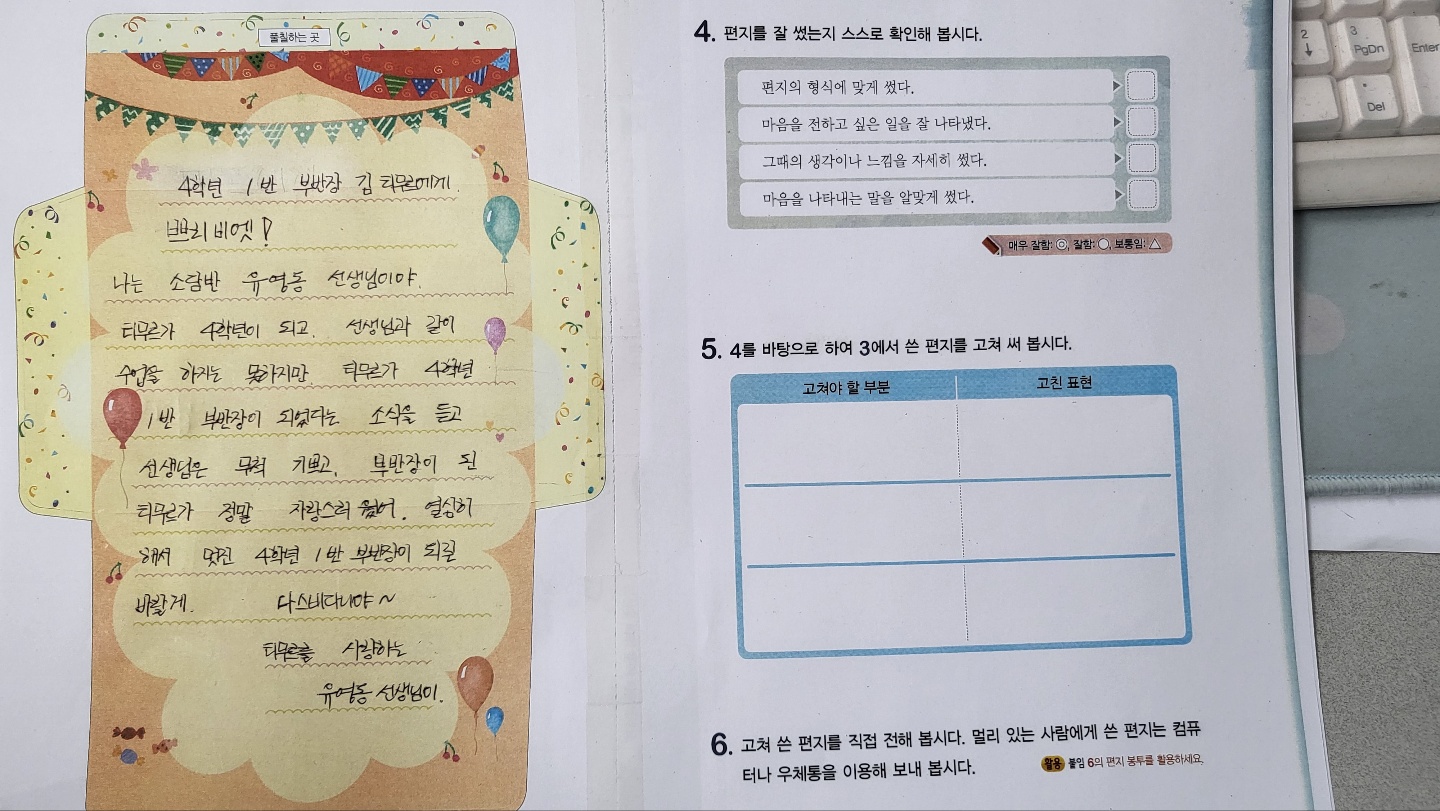 풀칠하는 곳
4학년 1반 부반장 김티무르에게.
쁘리비엣!
나는 소담반 유영동 선생님이야.
티무르가 4학년이 되고. 선생님과 같이
수업을 하지는 못하지만. 티무르가 4학년
1반 부반장이 되었다는 소식을 듣고
선생님은 무척 기쁘고, 부반장이 된
티무르가 정말 자랑스러웠어. 열심히
해서 멋진 4학년 1반 부반장이 되길
바랄게. 다스비다니야~
티무르를 사랑하는
유영동 선생님이.
4. 편지를 잘 썼는지 스스로 확인해 봅시다.
편지의 형식에 맞게 썼다.
마음을 전하고 싶은 일을 잘 나타냈다.
그때의 생각이나 느낌을 자세히 썼다.
마음을 나타내는 말을 알맞게 썼다.
매우 잘함: ◎, 잘함: ○, 보통임: △
5. 4를 바탕으로 하여 3에서 쓴 편지를 고쳐 써 봅시다.
고쳐야 할 부분 고친 표현
6. 고쳐 쓴 편지를 직접 전해 봅시다. 멀리 있는 사람에게 쓴 편지는 컴퓨
터나 우체통을 이용해 보내 봅시다.
활용 붙임 6의 편지 봉투를 활용하세요.
2
↓
3
PgDn
Enter
.
Del